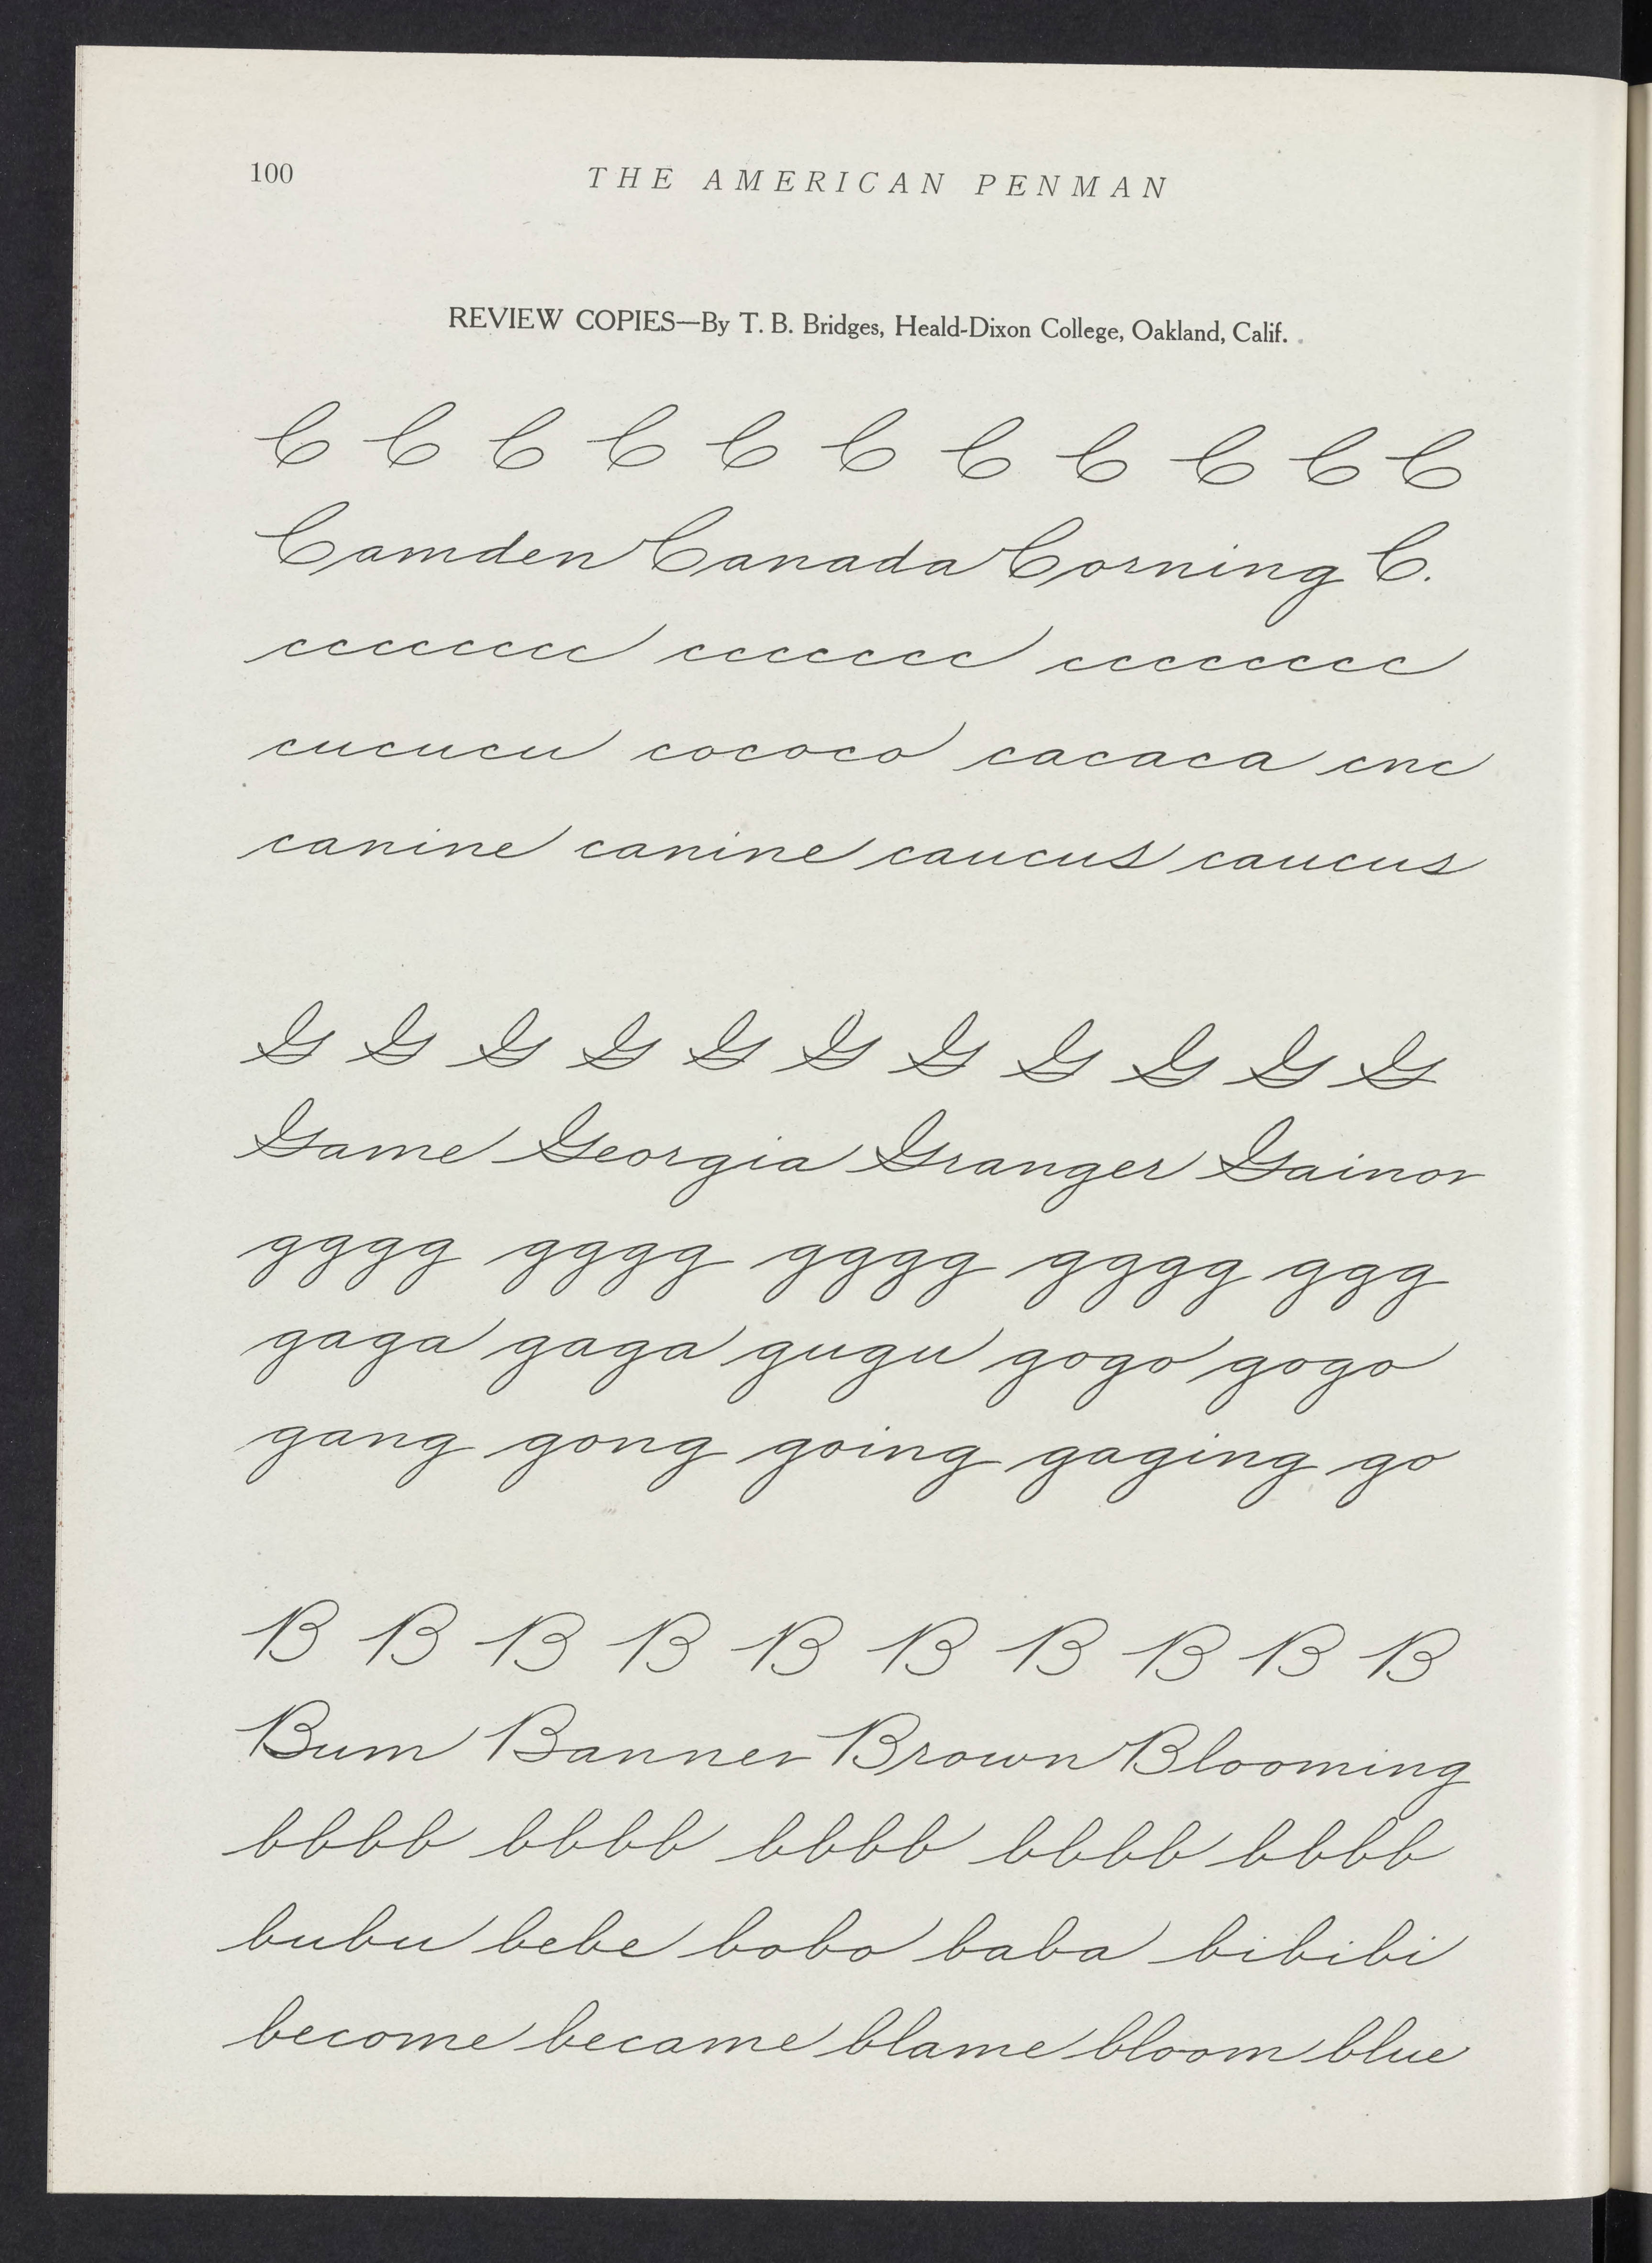 100
THE AMERICAN PENMAN
REVIEW COPIES—By T. B. Bridges, Heald-Dixon College, Oakland, Calif.
C C C C C C C C C C C
Camden Canada Corning C.
cccccccc ccccccc cccccccc
cucucu cococo cacaca cnc
canine canine caucus caucus
G G G G G G G G G G G
Game Georgia Granger Gainor
gggg gggg gggg gggg ggg
gaga gaga gugu gogo gogo
gang gong going gaging go
B B B B B B B B B B
Bum Banner Brown Blooming
bbbb bbbb bbbb bbbb bbbb
bubu bebe bobo baba bibibi
become became blame bloom blue